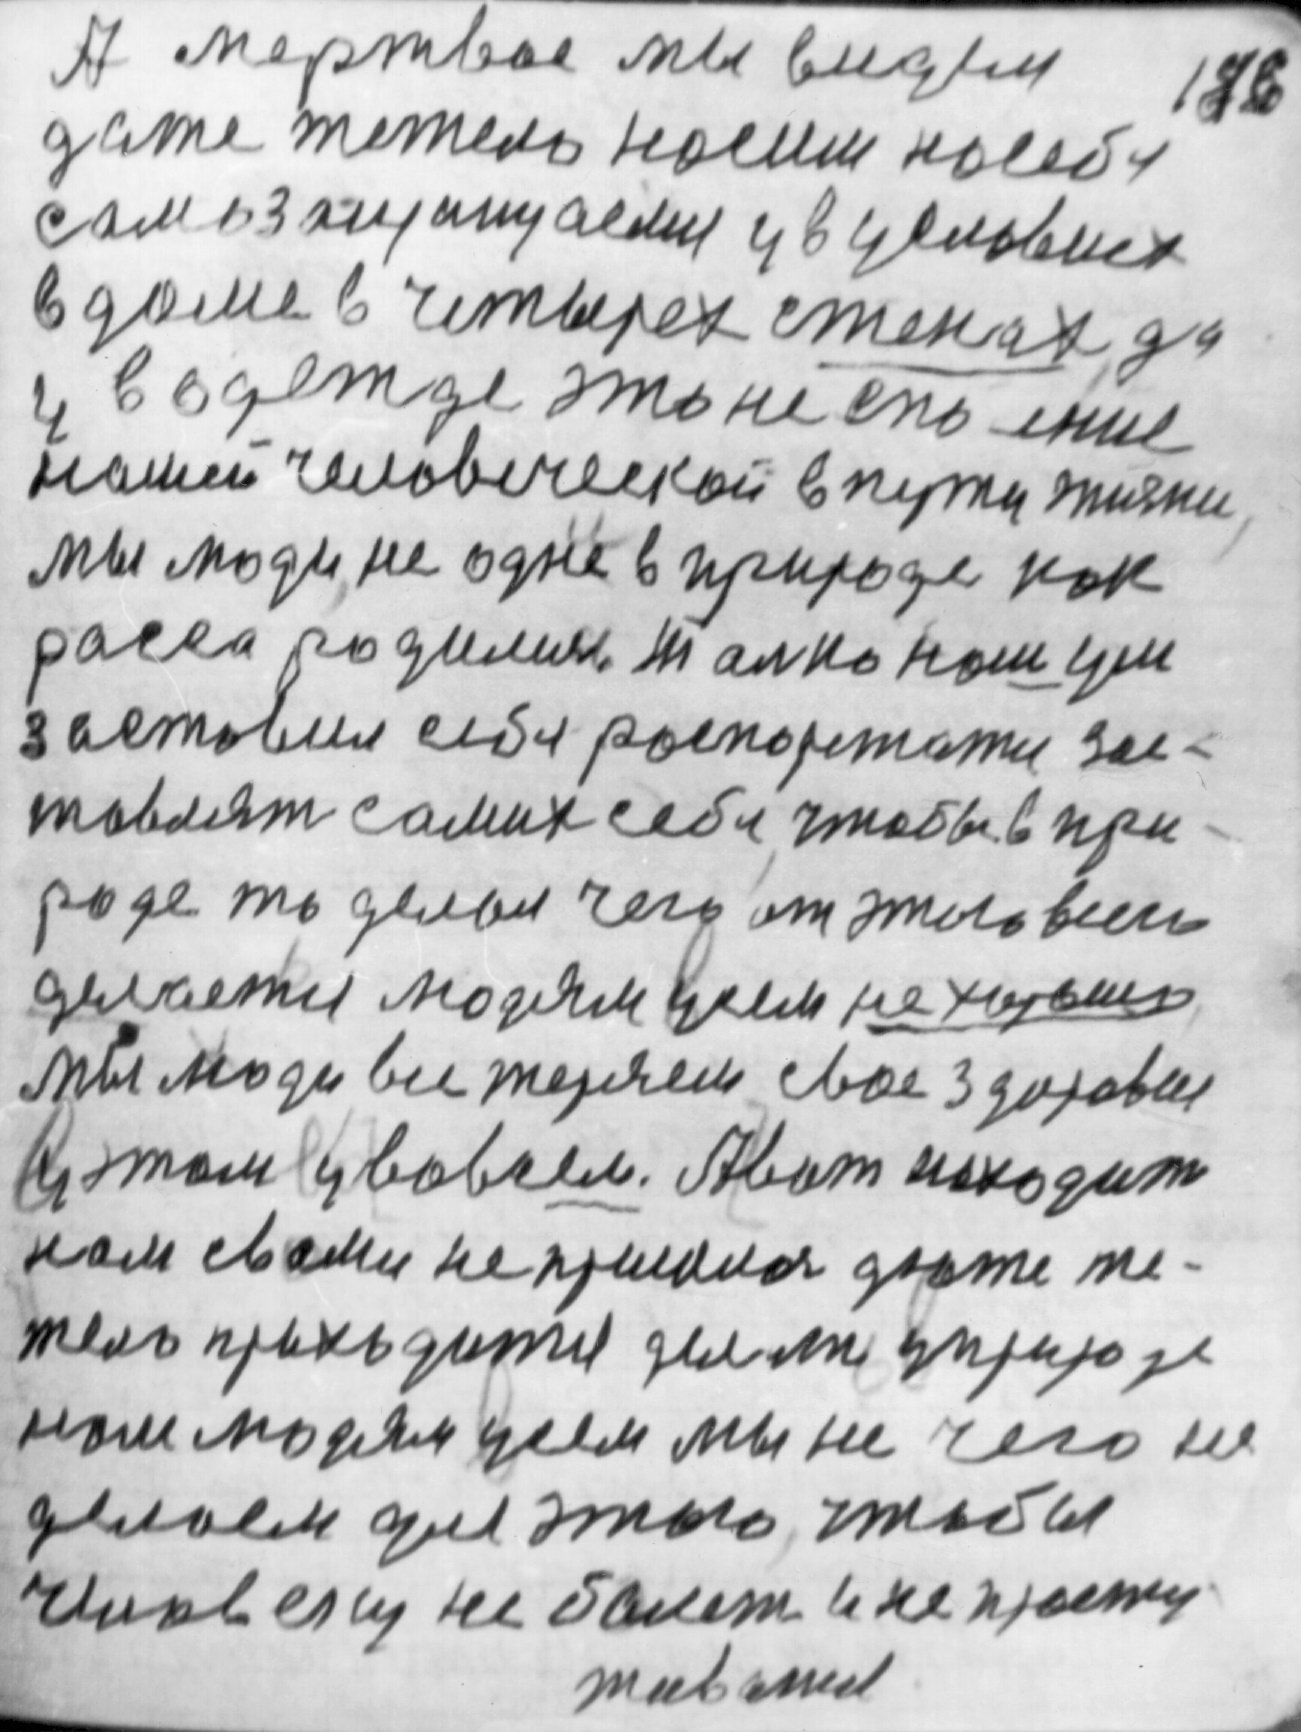 А мертвое мы видим
186
даже тежело носим насебя
самозащищаемся у в условиях
в доме в четырех стенах, да
у в одежде это не спасение
нашей человеческой в пути жизни,
мы люди, не одне в природе как
расса родилися. Только наш ум
заставил себя распоретжати зас-
тавлят самих себя, чтобы в при-
роде то делал чего от этого всего
делается людям усем не хорошо,
мы люди все теряем свое здоровие
у этом у вовсем. А вот находит
нам свами не приемлоя даже те-
жело приходится делати у природе
нам людям усем мы не чего не
делаем для этого, чтобы
человеку не болет и не просту
живатися